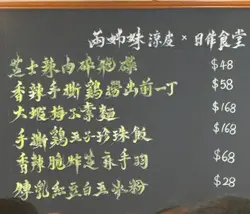 兩姊妹 涼皮 × 日作食堂
芝士辣肉碎 $48
香辣手撕鷄撈出前一丁 $58
大蝦梅子素麵 $168
手撕鷄玉子珍珠飯 $168
香辣脆炸芝麻手羽 $68
煉乳紅豆白玉氷粉 $28